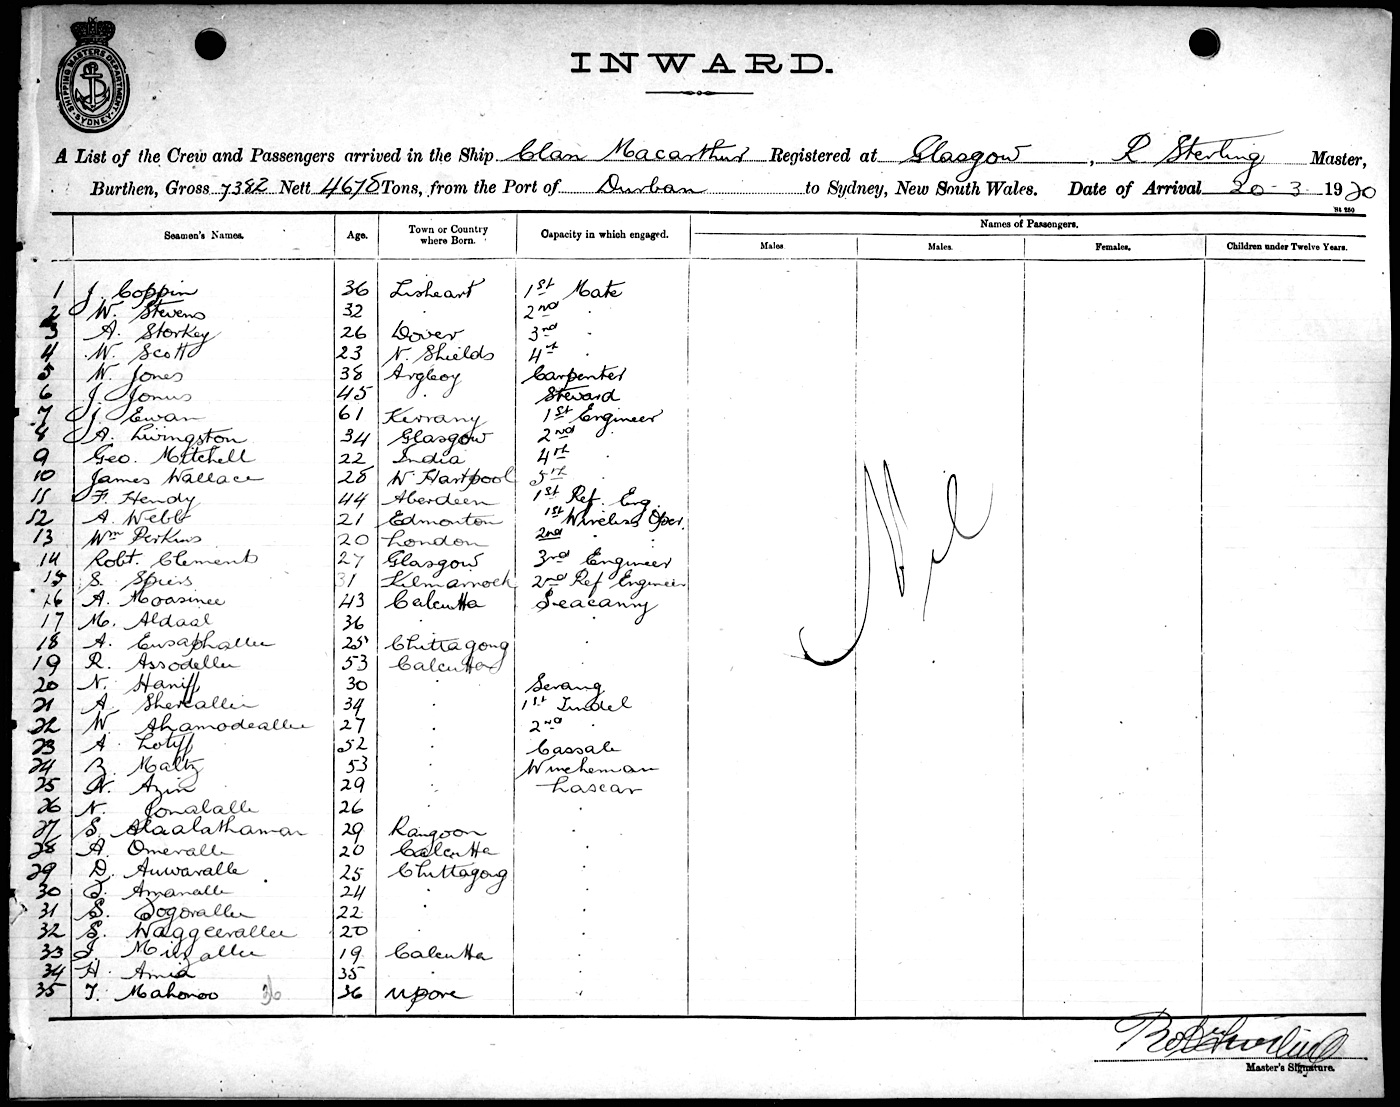 SHIPPING MASTERS DEPARTMENT
SYDNEY
INWARD.
A List of the Crew and Passengers arrived in the Ship Clan Macarthur Registered at Glasgow, R Sterling Master,
Burthen, Gross 7382 Nett 4678 Tons, from the Port of Durban to Sydney, New South Wales. Date of Arrival 20-3-1920
Seamen's Names. Age. Town or Country where Born. Capacity in which engaged. Names of Passengers.
Males. Males. Females. Children under Twelve Years.
1 J. Coppin 36 Lisheart 1st Mate
2 W. Stevens 32 . 2nd .
3 A. Storkey 26 Dover 3rd .
4 W. Scott 23 N. Shields 4th .
5 W. Jones 38 Carpenter
6 J. 45 . Steward
7 J. Ewan 61 1st Engineer
8 A. Livingston 34 Glasgow 2nd .
9 Geo. Mitchell 22 India 4th .
10 James Wallace 28 W Hartpool 5th .
11 F. Hendy 44 Aberdeen 1st Ref. Eng.
12 A. Webb 21 Edmonton 1st Wireless Oper.
13 Wm Perkins 20 London 2nd . .
14 Robt. Clements 27 Glasgow 3rd Engineer
15 S. Spiers 31 Kilmarnock 2nd Ref Engineer
16 A. Moasinee 43 Calcutta Seacanny
17 M. Aldaal 36 . .
18 A. Eusaphallee 25 Chittagong .
19 R. Assodellee 53 Calcutta .
20 N. Haniff 30 . Serang
21 A. Shereallee 34 . 1st Tindel
22 W Ahamodeallee 27 . 2nd .
23 A. Lotiff 52 . Cassab
24 Z. Maltz 53 . Wincheman
25 N. Azin 29 . Lascar
26 N. 26 . .
27 S. Alaalathaman 29 Rangoon .
28 A. Omeralle 20 Calcutta .
29 D. Auwaralle 25 Chittagong .
30 Amanalle 24 . .
31 S. 22 . .
32 S. Waggeerallee 20 . .
33 19 Calcutta .
34 H. Amid 35 . .
35 T. Mahomoo 36 36 .
Nil
Master's Signature.